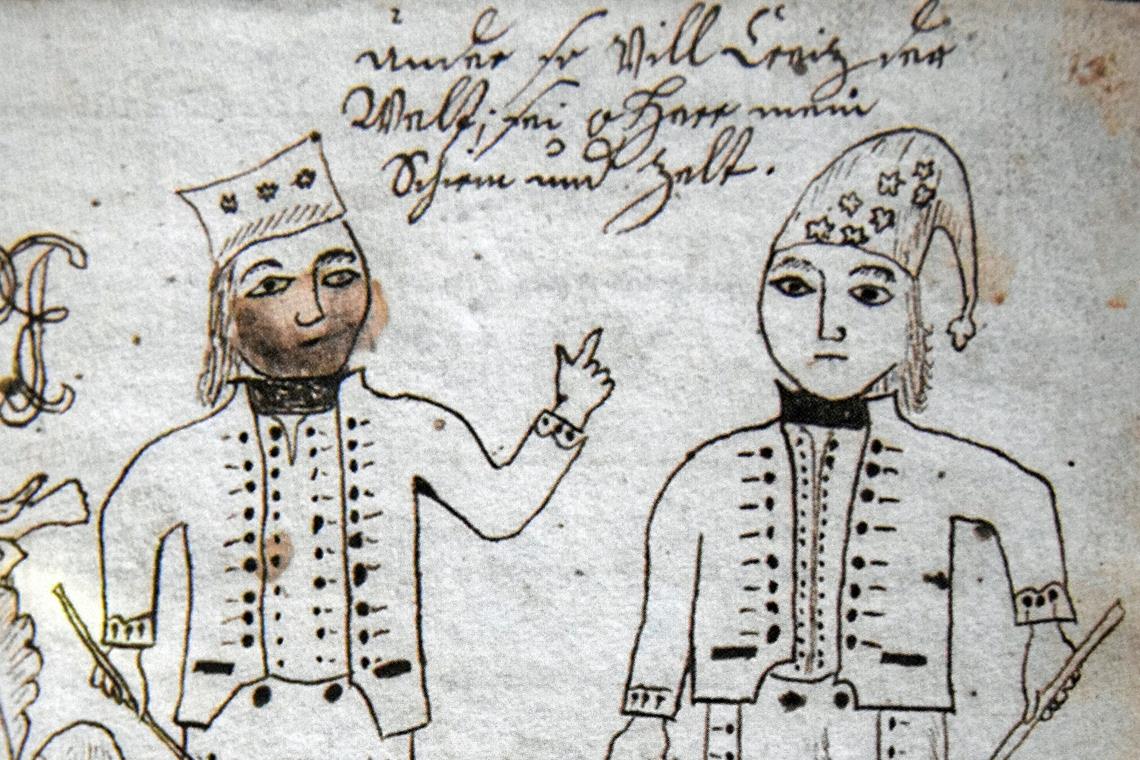 Under so Vill Creitz der
Welt; sei o Herr mein
Schirm und Zelt.